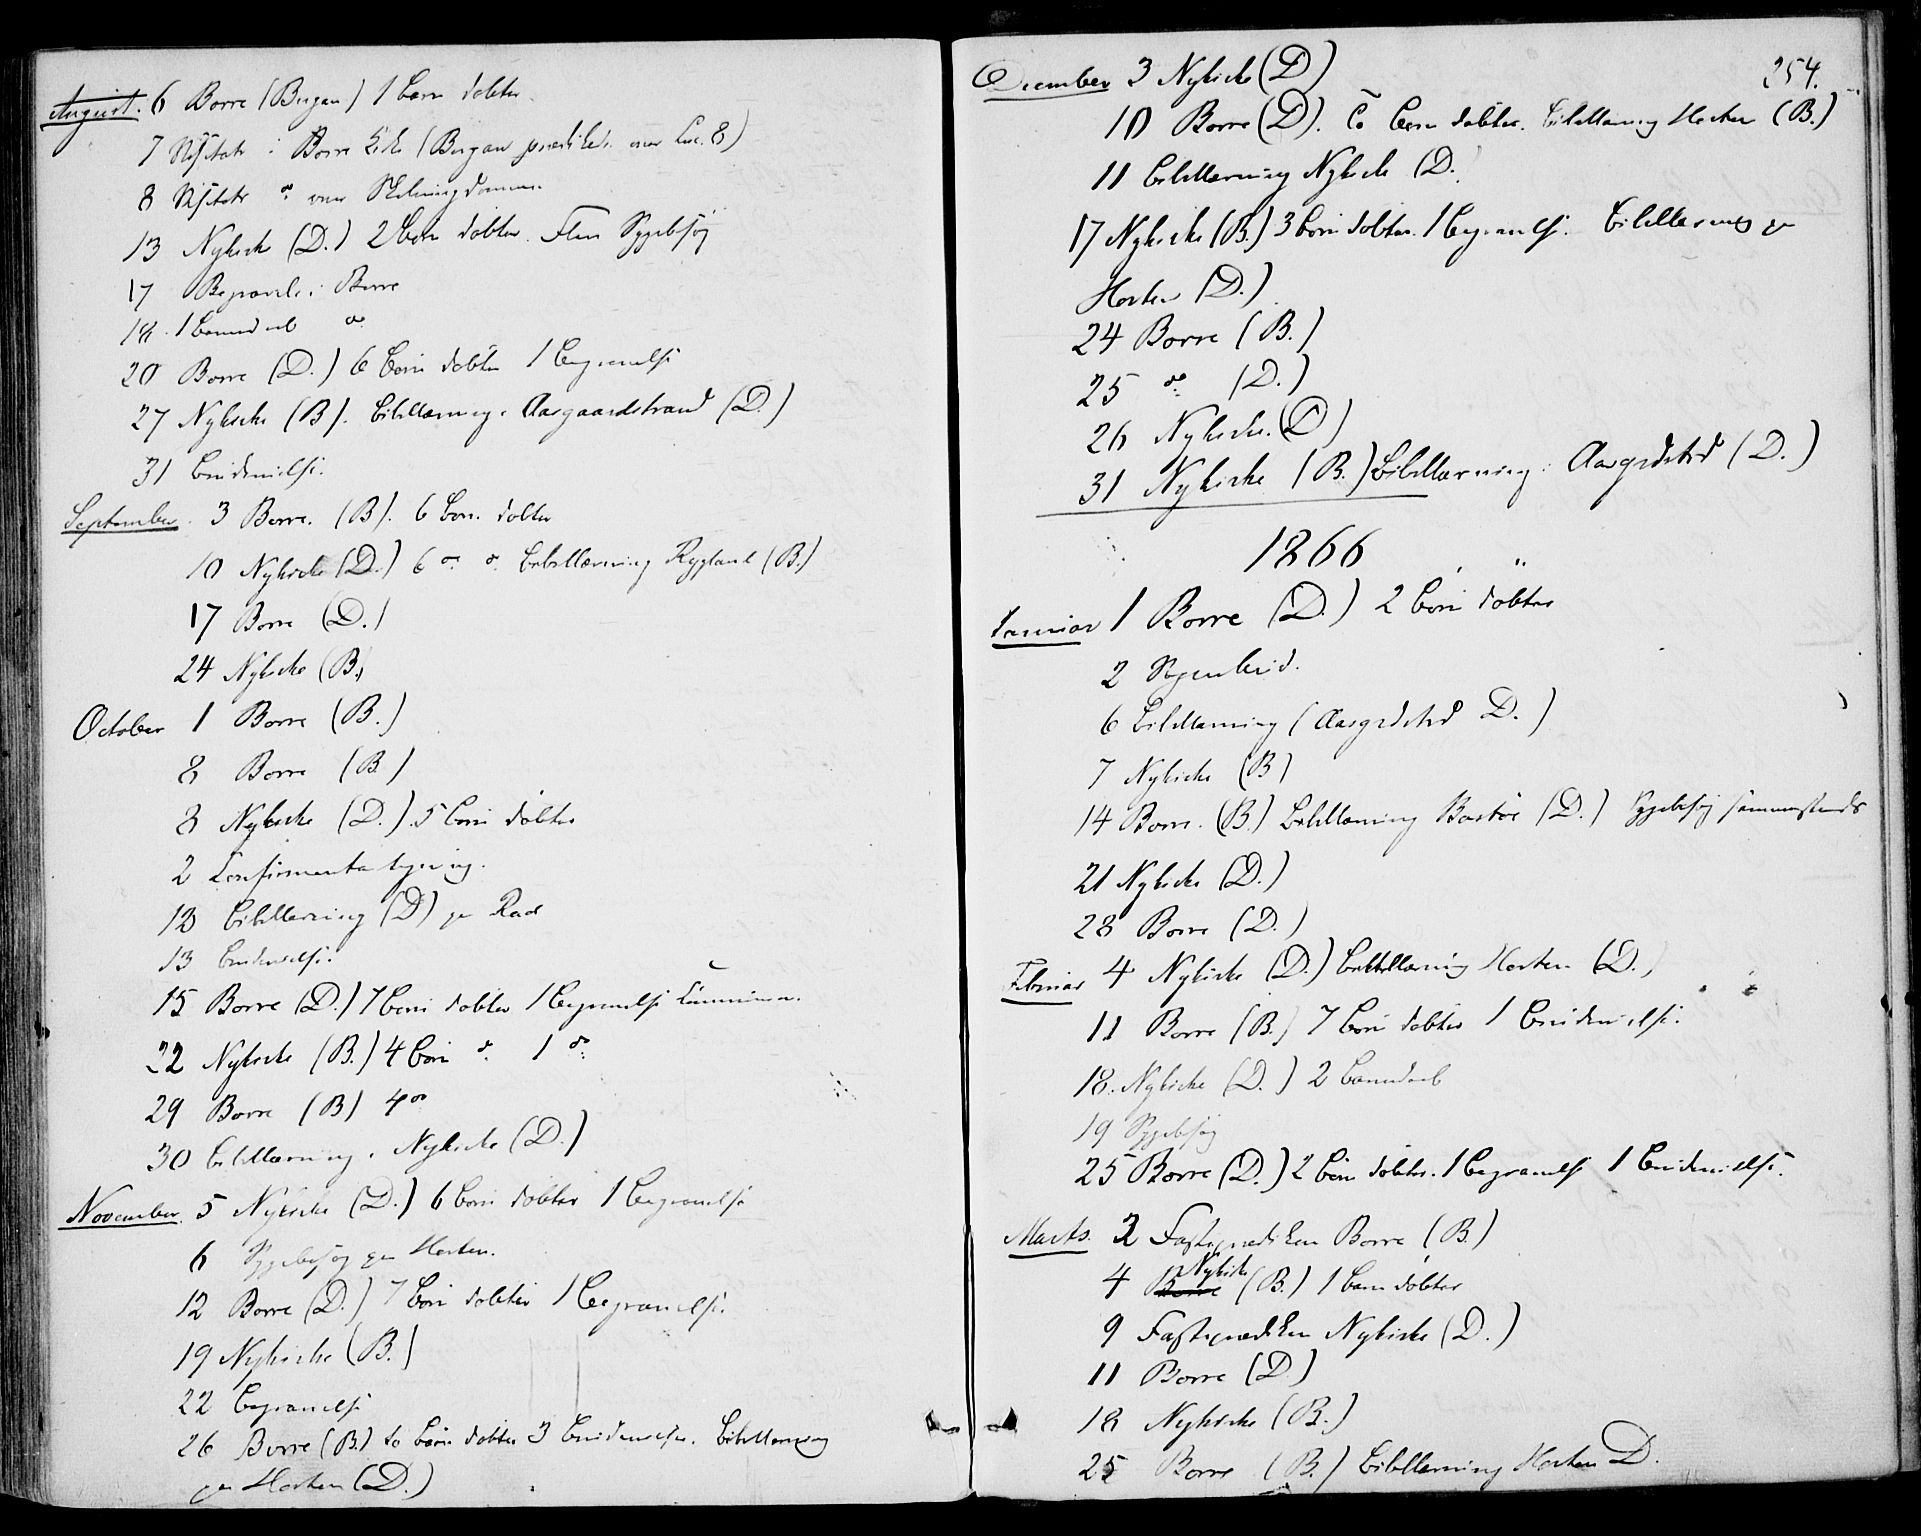 August. 6 Borre (Bugan) 1 barn döbte
7 Visitats i Borre Kirke (Bugan prædiket over Luc. 8)
8 Visitats do over
13 Nykirke (D.) 2 börn döbte. Flere Sygebesøg
17 Begravelse i Borre
18. 1 barnedaab do
20 Borre (D.) 6 börn döbte 1 begravelse
27 Nykirke (B). Bibellæsning i Aasgaardstrand (D.)
31 Brudevielse.
September. 3 Borre. (B). 6 börn döbte
10 Nykirke (D.) 6 do do Bibellæsning (B.)
17 Borre (D.)
24 Nykirke (B.)
October 1 Borre (B.)
8 Borre (B.)
8 Nykirke (D.) 5 börn döbte
2 Confirmanta
12 Bibellæsning (D) paa
13 Brudevielse.
15 Borre (D.) 7 börn döbte 1 begravelse
22 Nykirke (B.) 4 börn do 1 do
29 Borre (B) 4 do
30 bibellæsning i Nykirke (D.)
November. 5 Nykirke (D.) 6 börn döbte 1 begravelse
6 Sygebesøg paa Horten.
12 Borre (D.) 7 börn döbte 1 begravelse.
19 Nykirke (B.)
22 begravelse
26 Borre (B.) to börn döbte 3 Brudevielser. Bibellæsning
paa Horten (D.)
254.
December 3 Nykirke (D)
10 Borre (D). To börn döbte. bibellæsning Horten (B.)
11 bibellæsning Nykirke (D.
17 Nykirke (B.) 3 börn döbte. 1 begravelse. Bibellæsning paa
Horten (D.)
24 Borre (B.)
25 do (D.)
26 Nykirke. (D)
31 Nykirke (B.) Bibellæsning i Aasgrdstrd (D.)
1866
Januar 1 Borre (D.) 2 börn döbte
2
6 Bibellæsning (Aasgrdstrd D.)
7 Nykirke (B)
14 Borre. (B.) Bibellæsning Bastöe (D.) Sygebesøg sammesteds
21 Nykirke (D.)
28 Borre (D.)
Februar 4 Nykirke (D.) bibellæsning Horten (D.)
11 Borre (B.) 7 börn döbte 1 Brudevielse.
18. Nykirke (D.) 2 barnedaab
19 Sygebesøg
25 Borre (D.) 2 börn döbte. 1 begravelse 1 Brudevielse.
Marts. 2 Fasteprædiken Borre (B.)
4 Borre Nykirke (B.) 1 barn döbte
9 Fasteprædiken Nykirke (D.)
11 Borre (D.)
18 Nykirke (B.)
25 Borre (B.) Bibellæsning Horten D.